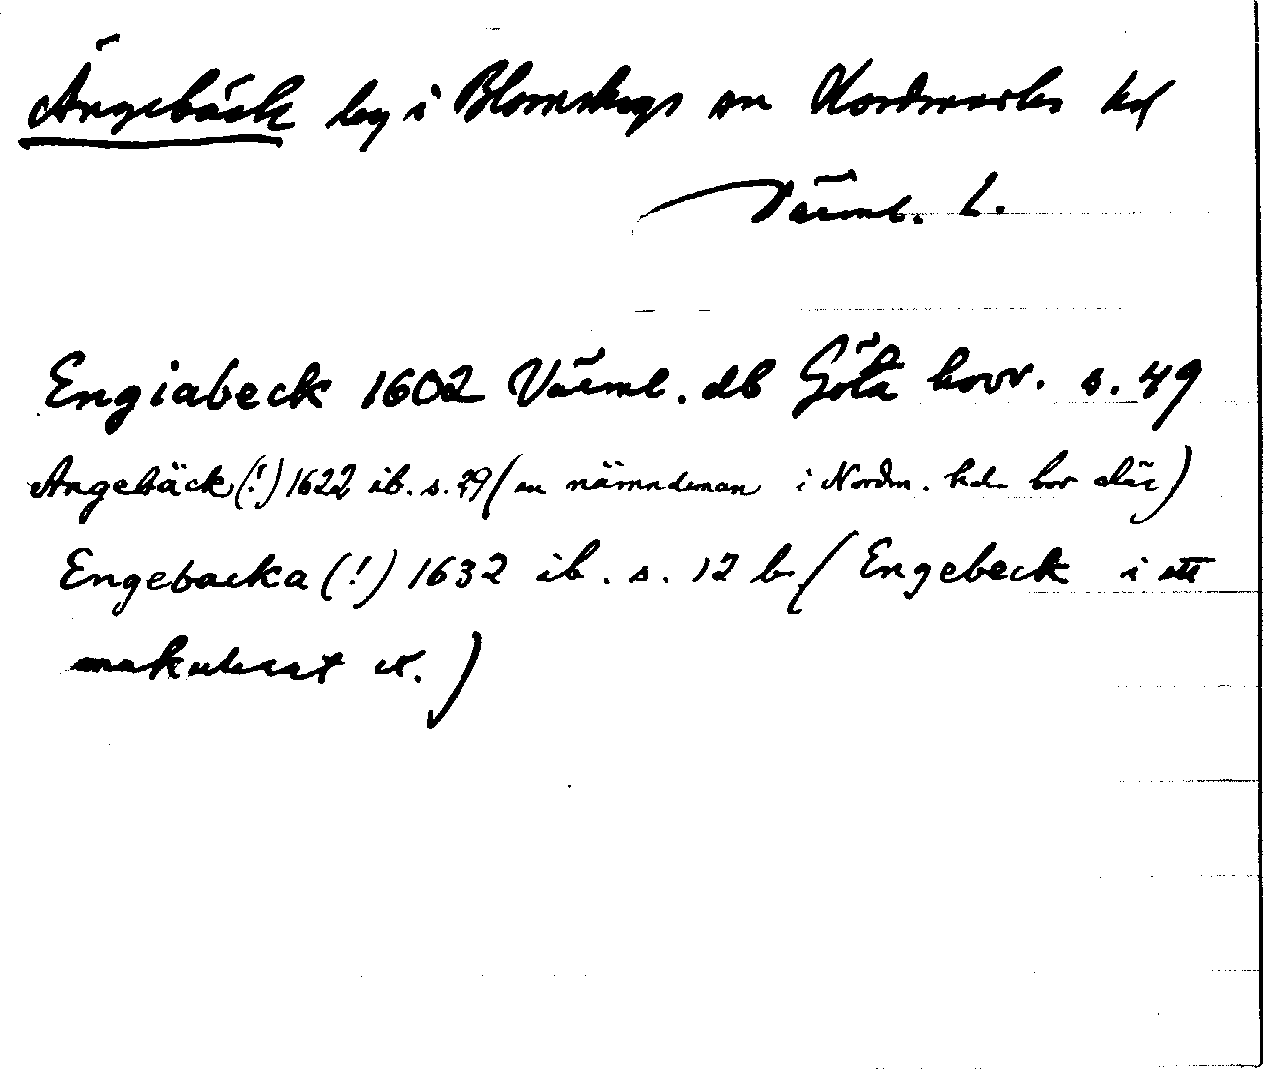 Ängebäck by i Blomskogs sn Nordmarks hd
Värml. l.
Engiabeck 1602 Värml. db Göta hovr. s. 49
Angebäck (!) 1622 ib. s. 79 (en nämndeman i Nordm. hd. bor där)
Engebacka (!) 1632 ib. s. 12 b (Engebeck i ett
makulerat st.)